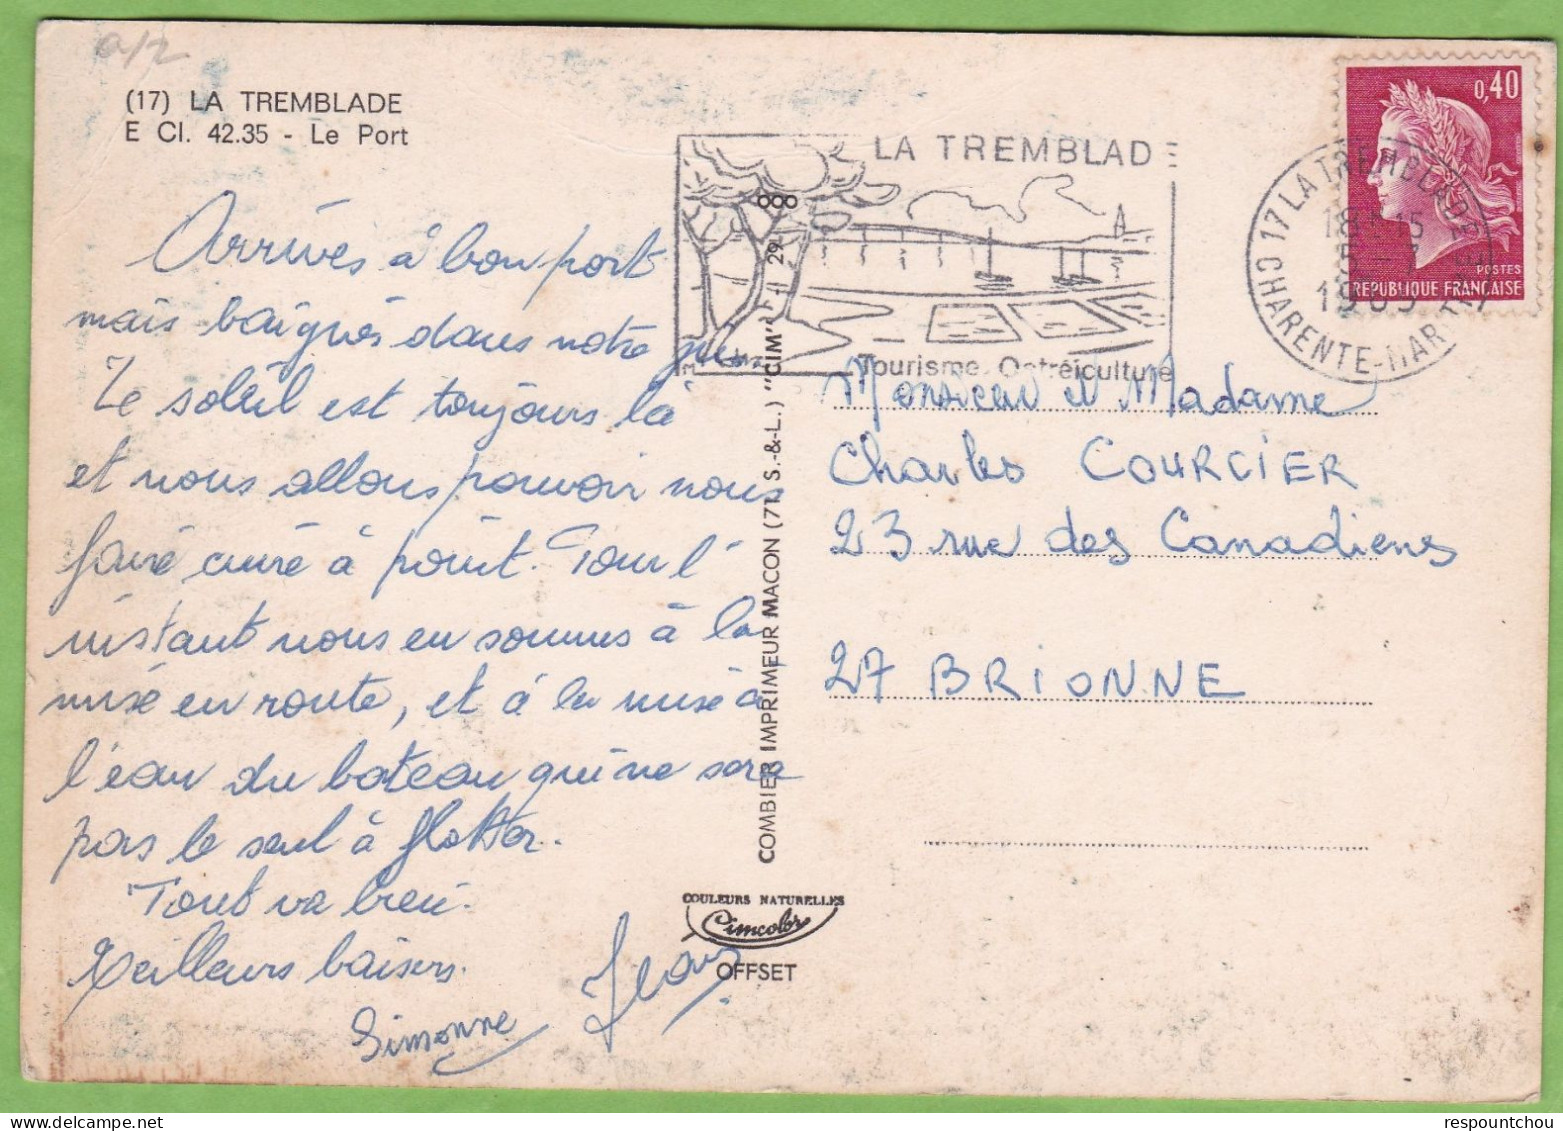 a/2
(17) LA TREMBLADE
E CI. 42.35 - Le Port
Arrivés à bon port
mais baignés dans notre jus
Le soleil est toujours là
et nous allons pouvoir nous
faire cuire à point. Pour l'
instant nous en sommes à la
mise en route, et à la mise à
l'eau du bateau qui ne sera
pas le seul à flotter.
Tout va bien.
Meilleurs baisers.
Simonne Jean
COMBIER IMPRIMEUR MACON (71. S.-&-L.) "CIM"
COULEURS NATURELLES
Cimcolor
OFFSET
LA TREMBLADE
Tourisme Ostréiculture
0,40
POSTES
REPUBLIQUE FRANÇAISE
17 LA TREMBLADE
CHARENTE-MARITIME
Monsieur et Madame
Charles COURCIER
23 rue des Canadiens
27 BRIONNE
respountchou